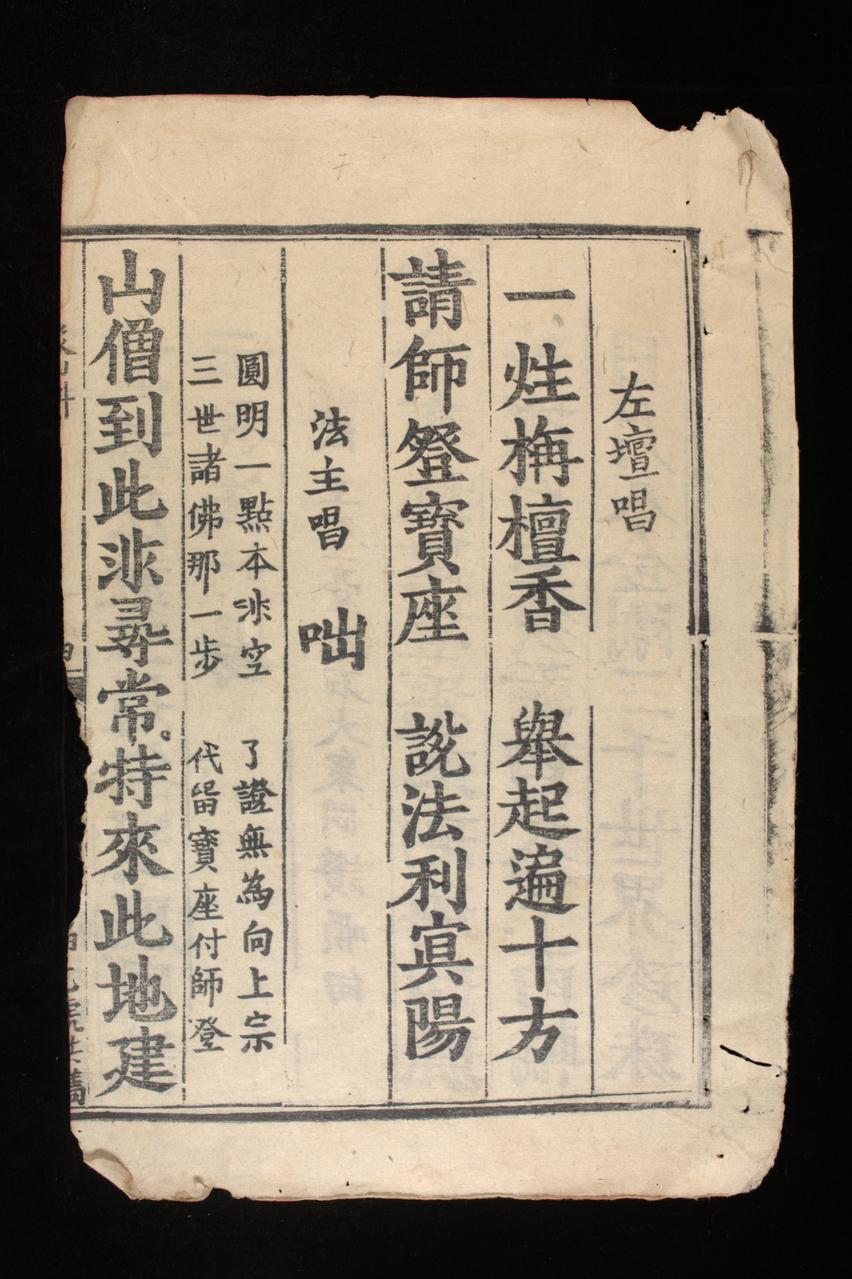 左壇唱
一炷栴檀香　舉起遍十方
請師登寶座　説法利㝠陽
法主唱　咄
圓明一點本非空　了證無為向上宗
三世諸佛那一步　代畱寶座付師登
山僧到此非尋常特來此地建